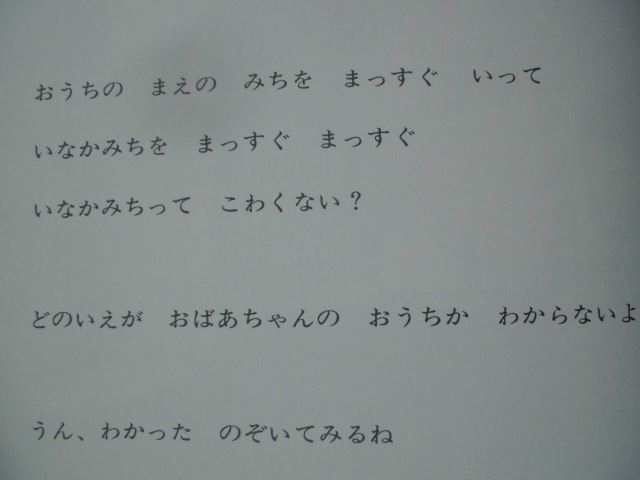 おうちの　まえの　みちを　まっすぐ　いって
いなかみちを　まっすぐ　まっすぐ
いなかみちって　こわくない？
どのいえが　おばあちゃんの　おうちか　わからないよ
うん、わかった　のぞいてみるね